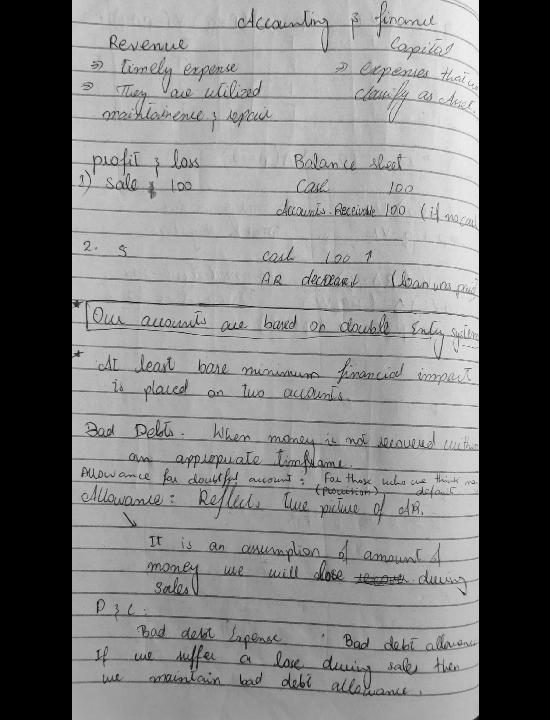 Accounting & finance
Revenue Capital
⇒ timely expense ⇒ expenses that
⇒ They are utilized classify as Asset.
maintainence & repair
profit & loss Balance sheet
1) Sale $ 100 Cash 100
Accounts Receivable 100 (if no
2. S cash 100 ↑
AR decreased (loan was paid
* Our accounts are based on double Entry system
* At least bare minimum financial impact
is placed on two accounts.
Bad Debts. When money is not recovered within
an appropriate timeframe.
Allowance for doubtful account: For those who we think
(Provision) default
Allowance: Reflects true picture of AR.
It is an assumption of amount of
money we will lose during
sales
P & L:
Bad debt Expense Bad debt allowance
If we suffer a lose during sales then
we maintain bad debt allowance.